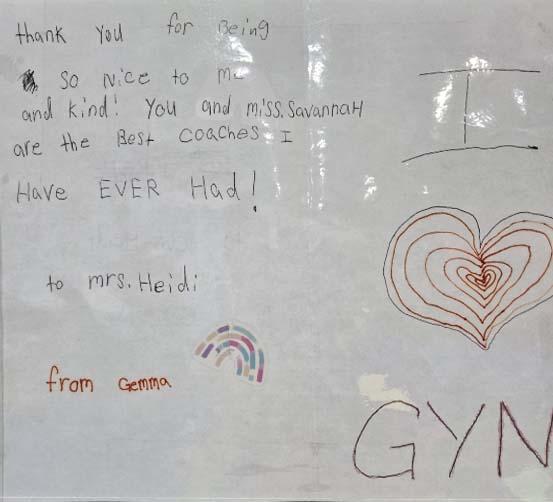 thank You for Being
so Nice to me
and kind! You and miss. SavannaH
are the Best coaches I
Have EVER Had!
to mrs. Heidi
from Gemma
I
GYN